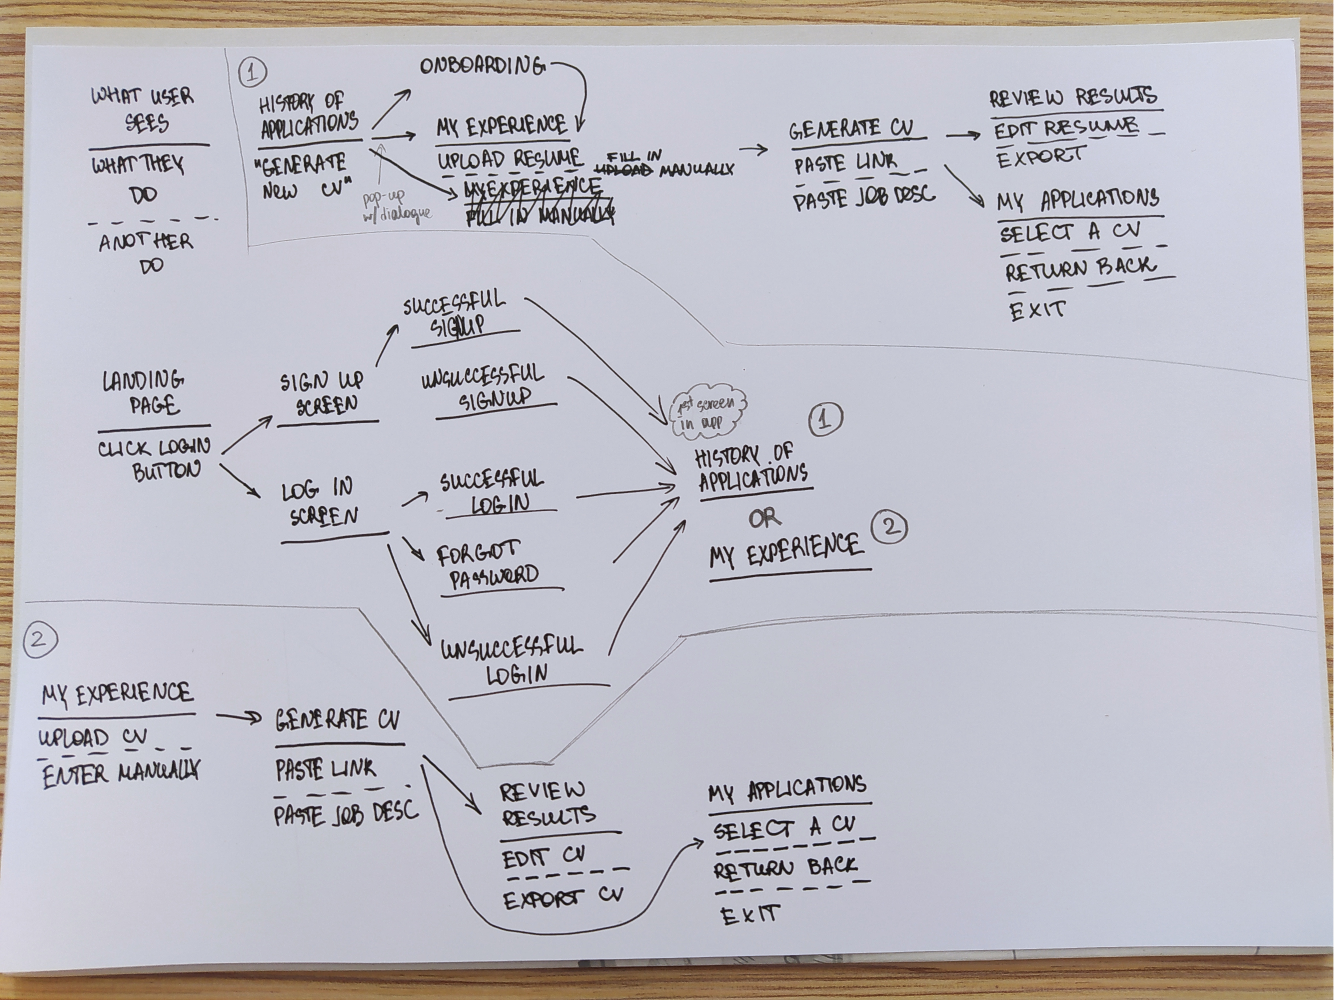 WHAT USER
SEES
WHAT THEY
DO
ANOTHER
DO
1
HISTORY OF
APPLICATIONS
"GENERATE
NEW CV"
pop-up
w/dialogue
ONBOARDING
MY EXPERIENCE
UPLOAD RESUME
FILL IN
UPLOAD MANUALLY
MY EXPERIENCE
FILL IN MANUALLY
GENERATE CV
PASTE LINK
PASTE JOB DESC
REVIEW RESULTS
EDIT RESUME
EXPORT
MY APPLICATIONS
SELECT A CV
RETURN BACK
EXIT
LANDING
PAGE
CLICK LOGIN
BUTTON
SIGN UP
SCREEN
LOG IN
SCREEN
SUCCESSFUL
SIGNUP
UNSUCCESSFUL
SIGNUP
SUCCESSFUL
LOGIN
FORGOT
PASSWORD
UNSUCCESSFUL
LOGIN
1st screen
in app
HISTORY OF
APPLICATIONS
1
OR
MY EXPERIENCE
2
2
MY EXPERIENCE
UPLOAD CV
ENTER MANUALLY
GENERATE CV
PASTE LINK
PASTE JOB DESC
REVIEW
RESULTS
EDIT CV
EXPORT CV
MY APPLICATIONS
SELECT A CV
RETURN BACK
EXIT